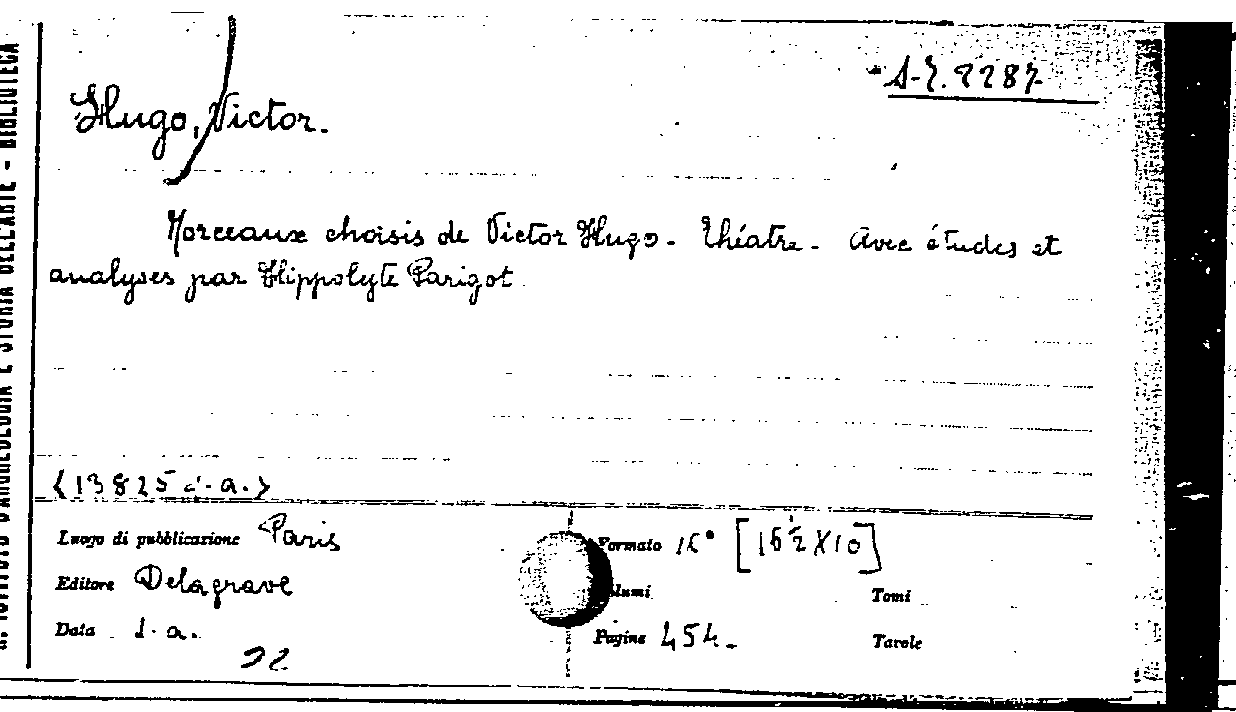 A-7. 2287
Hugo, Victor.
Morceaux choisis de Victor Hugo. - Théatre - Avec études et
analyses par Hippolyte Parigot
<13825 s.a.>
Luogo di pubblicazione Paris
Editore Delagrave
Data s.a.
Formato 16° [16½X10]
Volumi
Tomi
Pagine 454.
Tavole
ISTITUTO D'ARCHEOLOGIA E STORIA DELL'ARTE - BIBLIOTECA